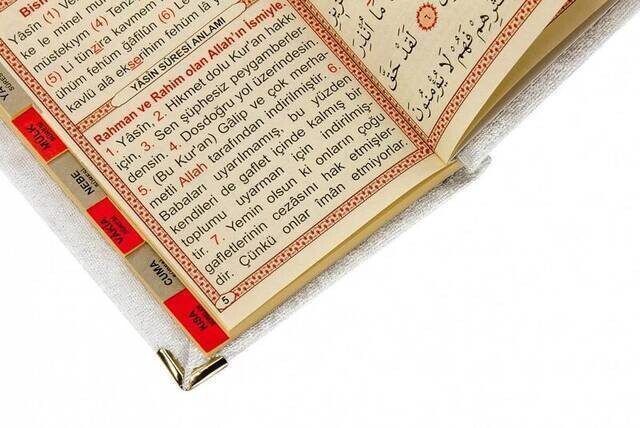 Yâsîn (1) Ve
ke le minel mü
müstekıym (4) Tenz
(5) Li tünzira kavmem
ühüm fehüm ğâfilûn (6) Le
kavlü alâ ekserihim fehüm lâ y
YÂSİN SÛRESİ ANLAMI
Rahman ve Rahim olan Allah'ın İsmiyle.
1. Yâsin, 2. Hikmet dolu Kur'an hakkı
için, 3. Sen şüphesiz peygamberler-
densin. 4. Dosdoğru yol üzerindesin.
5. (Bu Kur'an) Gâlip ve çok merha-
metli Allah tarafından indirilmiştir. 6.
Babaları uyarılmamış, bu yüzden
kendileri de gaflet içinde kalmış bir
toplumu uyarman için indirilmiş-
tir. 7. Yemin olsun ki onların çoğu
gafletlerinin cezâsını hak etmişler-
dir. Çünkü onlar îmân etmiyorlar.
5
لَقَدْ حَقَّ
فَهُمْ لَا يُؤْمِنُونَ
YÂ
SÛRESİ
MÜLK
SÛRESİ
NEBE
SÛRESİ
VAKIA
SÛRESİ
CUMA
KISA